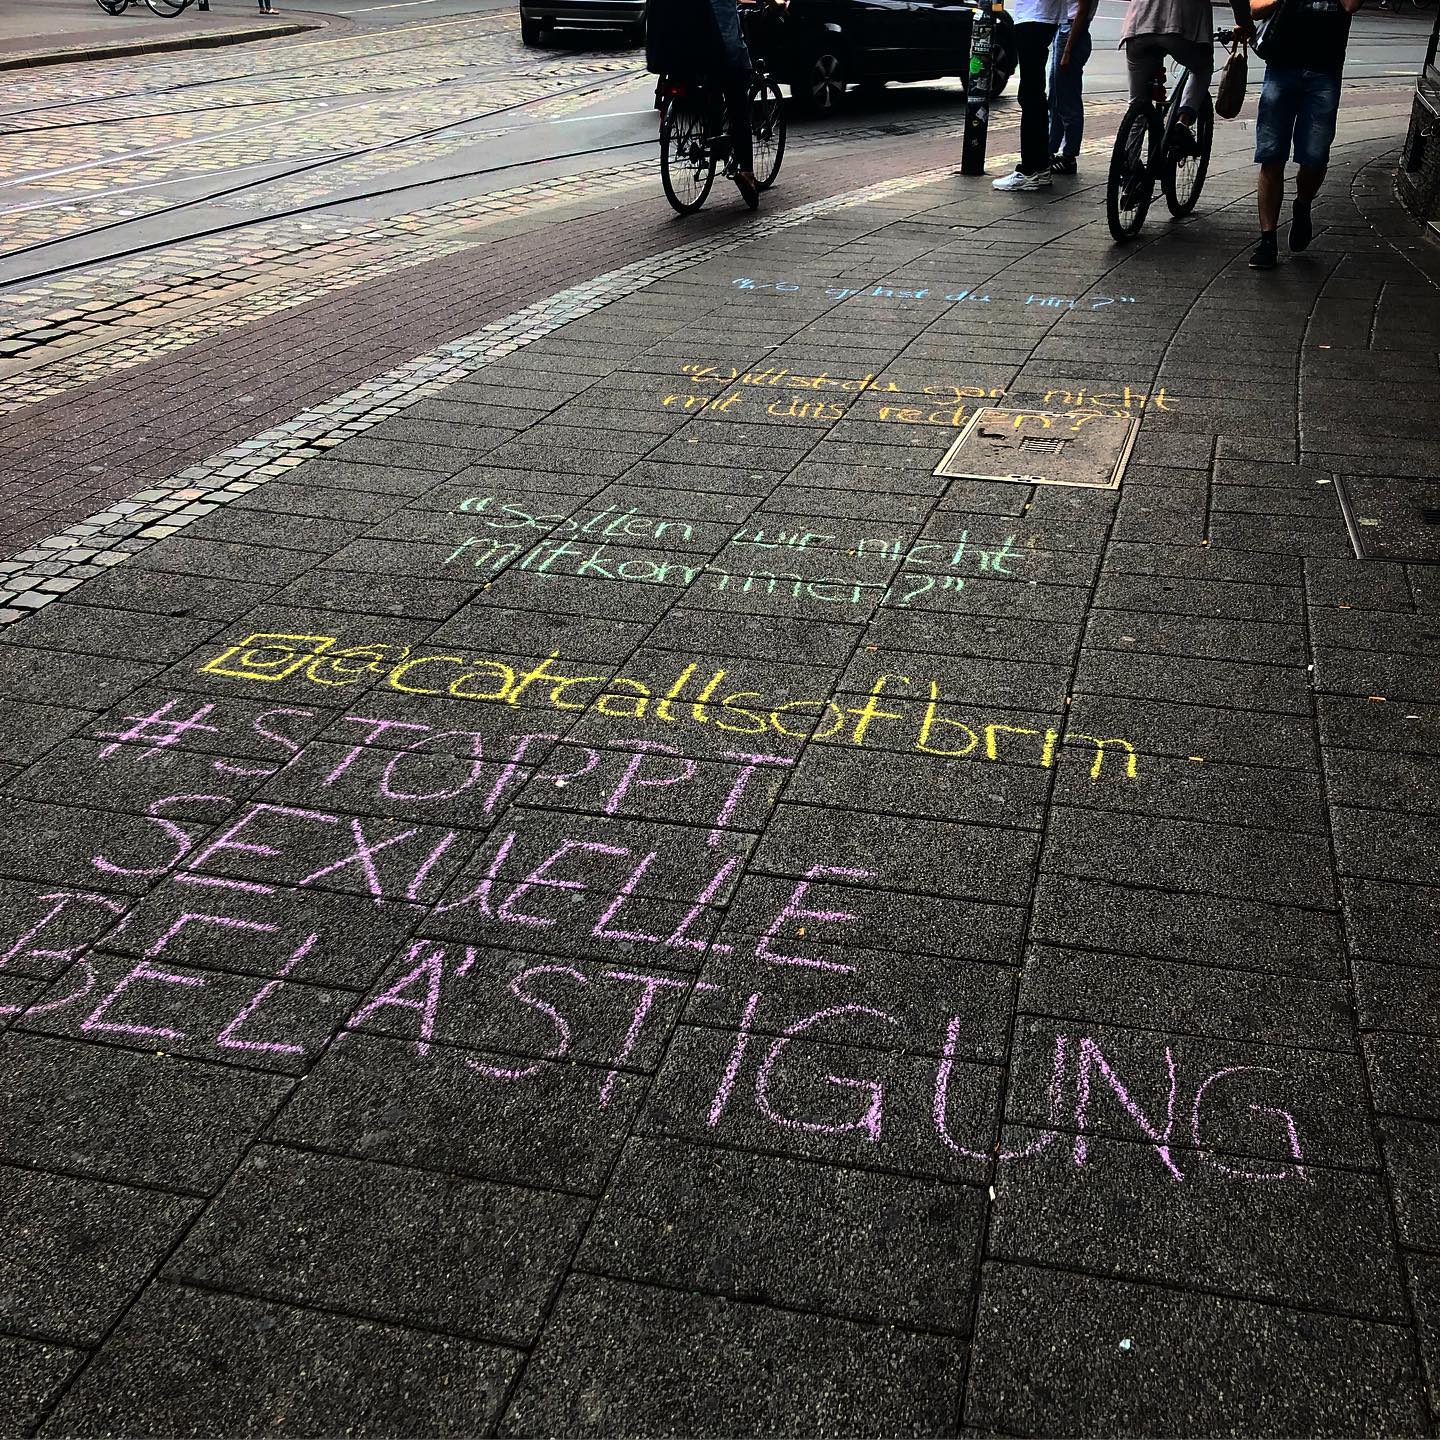 "Wo gehst du hin?"
"Willst du gar nicht
mit uns reden?"
"Sollen wir nicht
mitkommen?"
@catcallsofbrm
#STOPPT
SEXUELLE
BELÄSTIGUNG